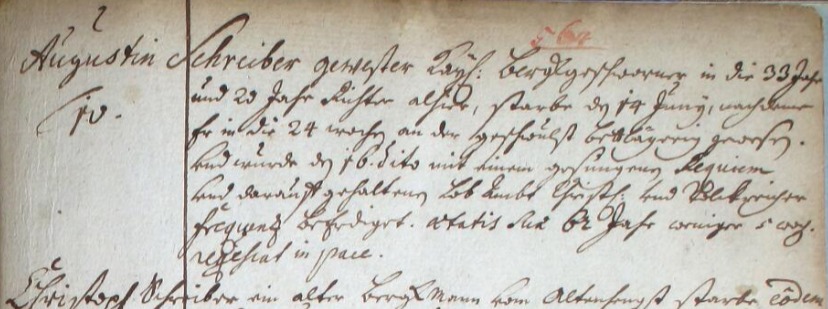 564
Augustin Schreiber gewester Kays: Berggeschworner in die 33 Jahr
10.
und 20 Jahr Richter alhier, starbe den 14 Juny, nachdeme
Er in die 24 wochen an der geschwulst bettlägerig gewesen.
und wurde den 16. dito mit einem gesungenen Requiem
und darauff gehaltenen Lob Ambt Christl: und Volckreicher
frequenz beerdiget. aetatis suae 62 Jahr weniger 5 woch.
requiescat in pace.
Christoph Schreiber ein alter Berg Mann vom Altenhengst starbe eodem